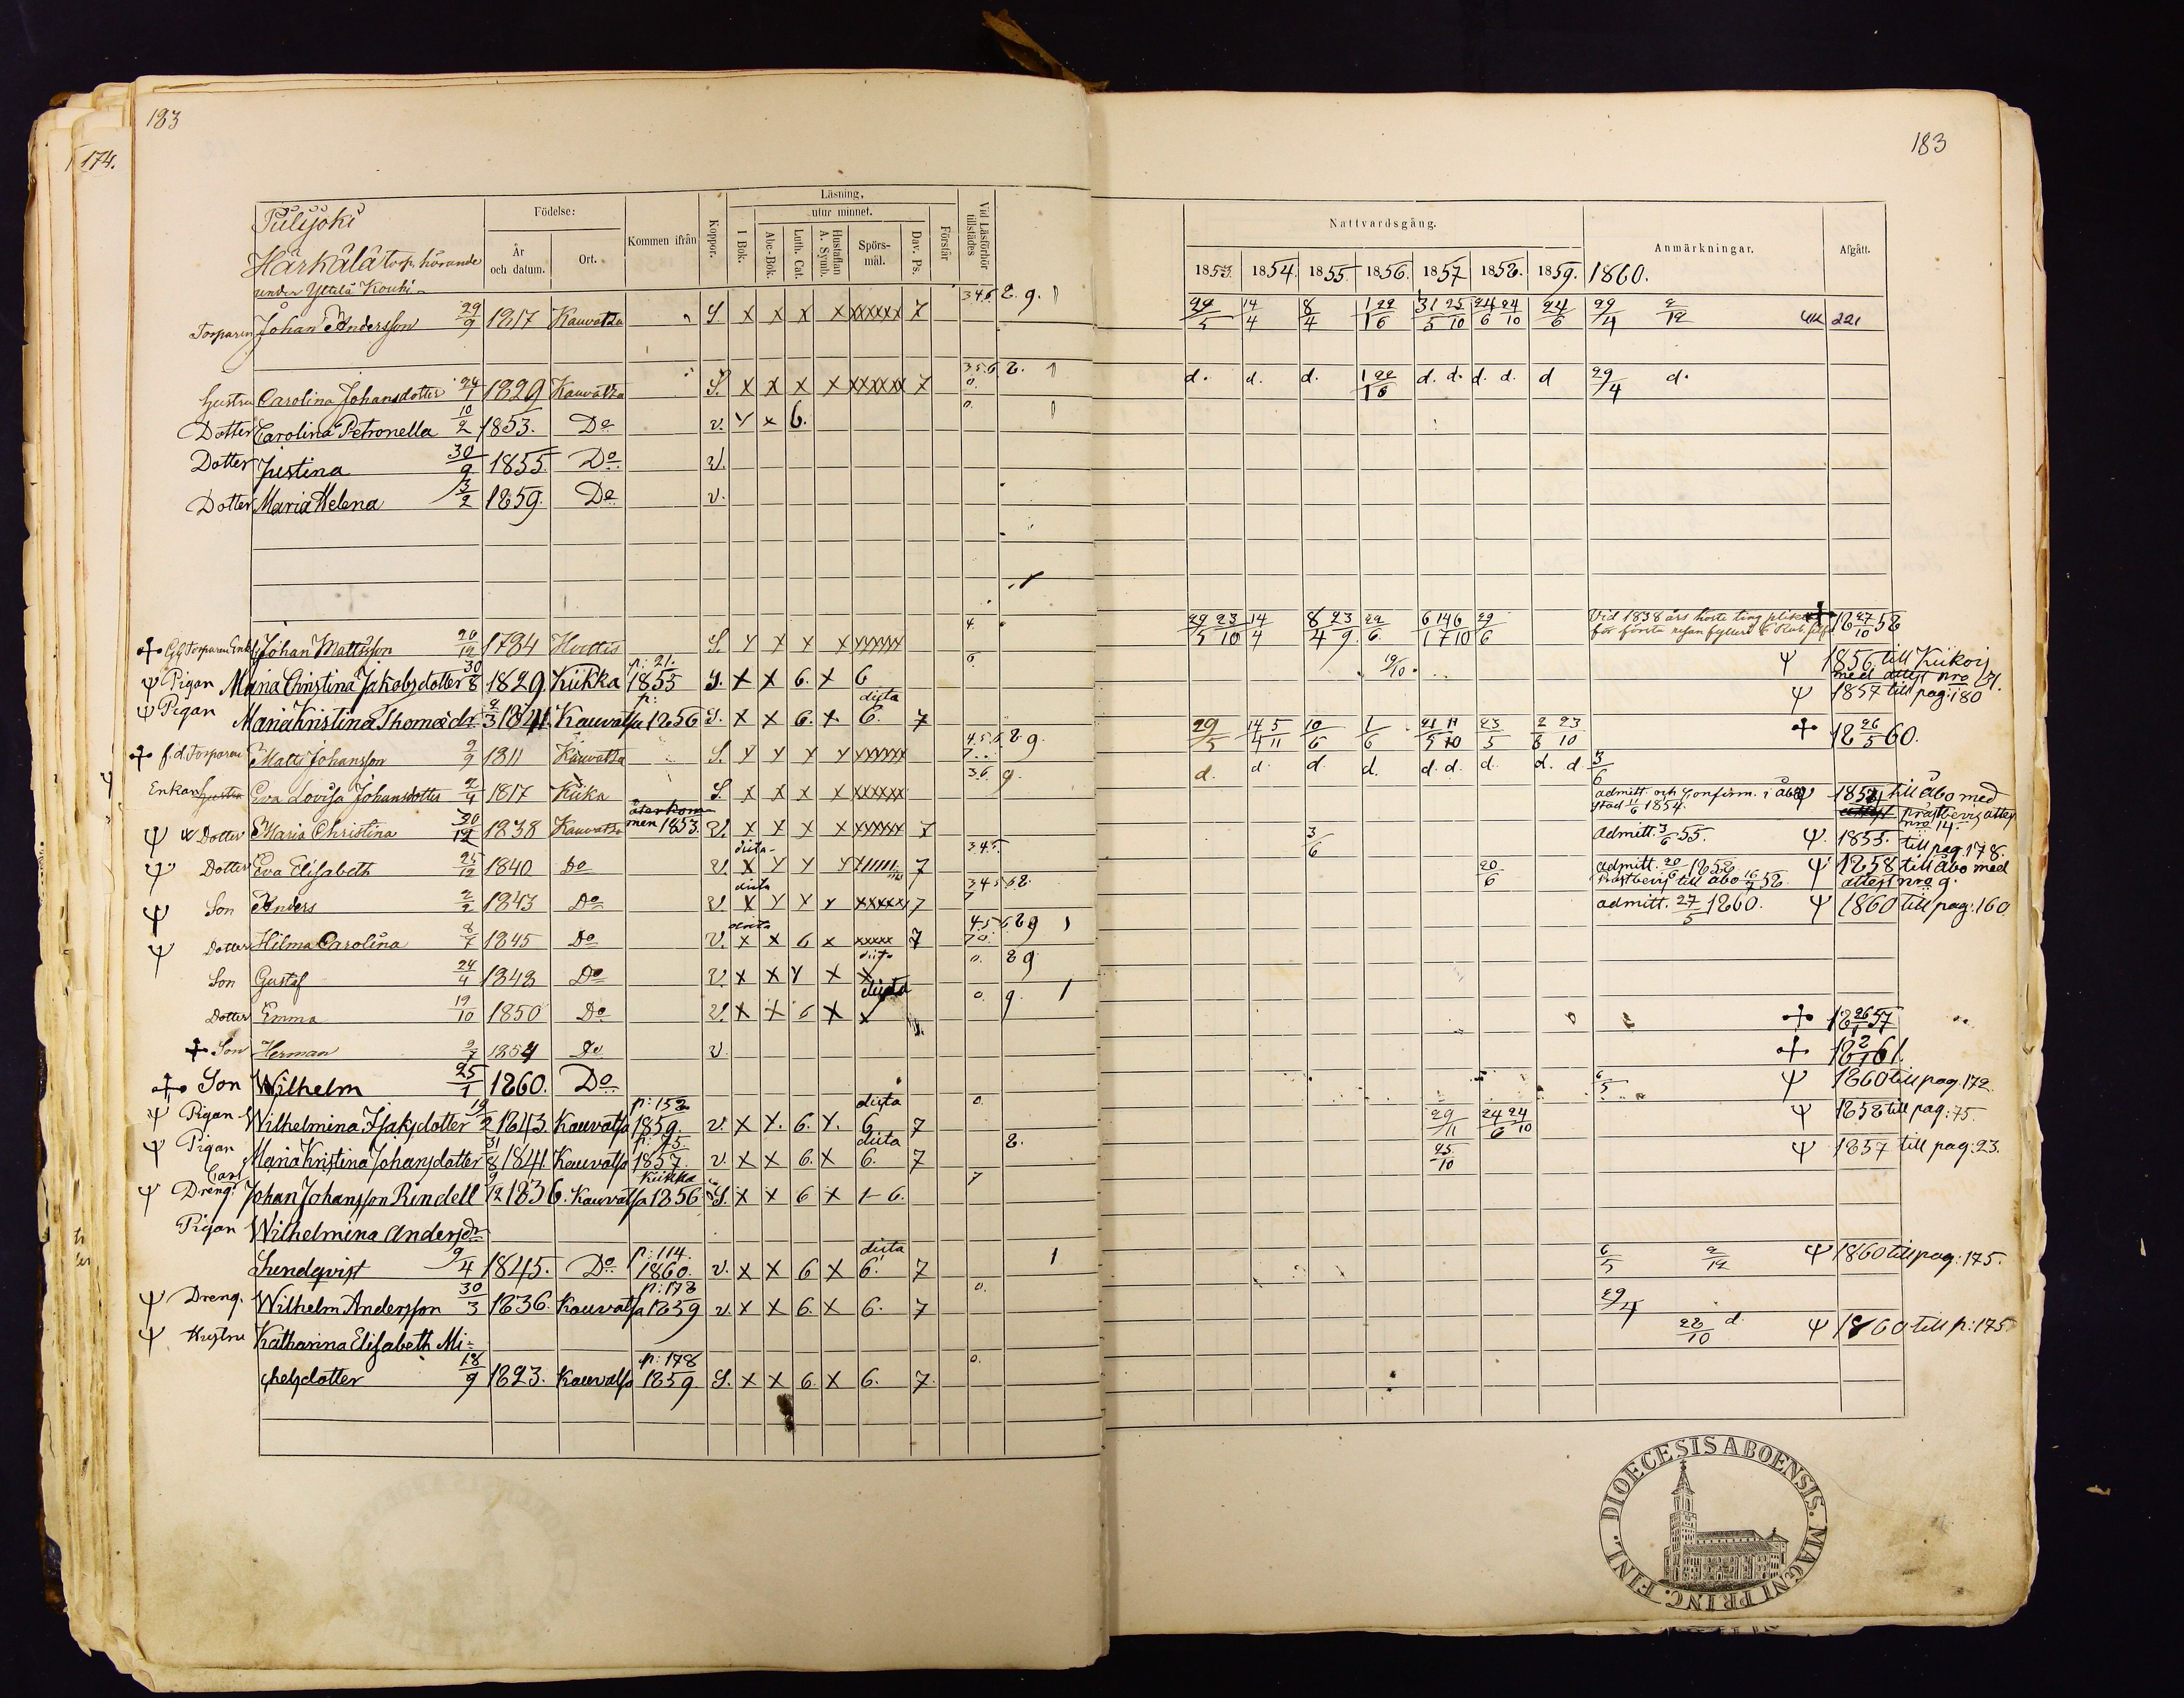 183
174.
183
Piilijoki
Härkälä torp. hörande
under Yttilä Kouhi
Födelse:
År
och datum.
Ort.
Kommen ifrån
Koppor.
Läsning,
utur minnet.
I Bok.
Abc-Bok.
Luth. Cat.
Hustaflan
A. Symb.
Spörs-
mål.
Dav. Ps.
Förstår
Vid Läsförhör
tillstädes
Nattvardsgång.
1853. 1854. 1855. 1856. 1857 1858. 1859. 1860.
Anmärkningar.
Afgått.
Torparen Johan Andersson 29/9 1817 Kauvatsa S. x x x x xxxxxx 7 3 4.6 8. 9. 14/4 8/4 24/6 29/4 2/12 221
Hustru Carolina Johansdotter 24/7 1829 Kauvatsa S. x x x x xxxxxx 7 3.5.6 8. 0. d. d. d. d. d. d. d. d 29/4 d.
Dotter Carolina Petronella 10/2 1853. Do v. y x 6. 0.
Dotter Justina 30/9 1855. Do v.
Dotter Maria Helena 3/2 1859. Do v.
Johan Mattsson 20/12 1784 S. y x x x xxxxxx 4. 14/4 8/4 23/9 29/6 Vid 1838 års höste ting 18 27/10 58
för första resan fylleri
Pigan Maria Christina Jakobsdotter 30/8 1829. Kiikka p: 21. 1855 S. x x 6. x 6 6. 19/10 1856 till Kiikois
med attest nro 21.
Pigan Maria Kristina Thomædr. 1841. Kauvatsa p: 1856 S. x x 6. x. dicta 6. 7 1857 till pag: 180
f.d. Torparen Matts Johansson 9/9 1811 Kauvatsa S. y y y y xxxxxx 4.5.6 8. 9. 29/5 10/6 1/6 23/5 18 26/5 60.
Enkan Hustru Eva Lovisa Johansdotter 2/4 1817 Kiika S. x x x x xxxxxx 3 6. 9. d. d. d. d. d. d. d. d. d. 3/6
Dotter Maria Christina 30/12 1838 Kauvatsa återkom-
men 1853. v. x x x x xxxxxx 7 admitt. och Confirm. i Åbo
stad 11/6 1854. till Åbo med
prästbevis attest
nro 14.
Dotter Eva Elisabeth 25/12 1840 Do v. x y y y 7 3.4.5. 3/6 admitt. 3/6 55. 1855. till pag. 178.
Son Anders 2/2 1843 Do v. x y y y xxxxx 7 20/6 admitt. 20/6 1858
Prästbevis till Åbo 58 1858 till Åbo med
attest nro 9.
Dotter Hilma Carolina 8/7 1845 Do v. x x 6 x xxxxx 7 4.5.6 8 9 admitt. 27/5 1860. 1860 till pag: 160.
Son Gustaf 24/4 1848 Do v. x x y x x 0. 8 9
Dotter Emma 19/10 1850 Do v. x x 6 x x 0. 9.
Son Herman 9/7 1854 Do v. 18 26/1 57
Son Wilhelm 25/1 1860. Do 18 2/1 61.
Pigan Wilhelmina Isaksdotter 1843. Kauvatsa p: 152 1859. v. x x. 6. x. dicta 6 7 0. 6/5 1860 till pag. 172.
Pigan Maria Kristina Johansdotter 31/8 1841. Kauvatsa p: 75. 1857. v. x x 6. x dicta 6. 7 8. 29/11 24/6 24/10 1858 till pag: 75.
Dreng. Carl Johan Johansson Rindell 9/12 1836. Kauvatsa Kiikka 1856 S. x x 6 x 6. 7 25/10 1857 till pag: 23.
Pigan Wilhelmina Andersdr
Lundqvist 9/4 1845. Do p: 114. 1860. v. x x 6 x dicta 6. 7 6/5 2/12 1860 till pag: 175.
Dreng. Wilhelm Andersson 30/3 1836. Kauvatsa p: 178 1859 v. x x 6. x 6. 7 0. 29/4
Hustru Katharina Elisabeth Mi=
chelsdotter 18/9 1823. Kauvatsa p: 178 1859. S. x x 6. x 6. 7. 0. 28/10 d. 1860 till p: 175
DIOECESIS ABOENSIS. MAGNI PRINC. FINL.